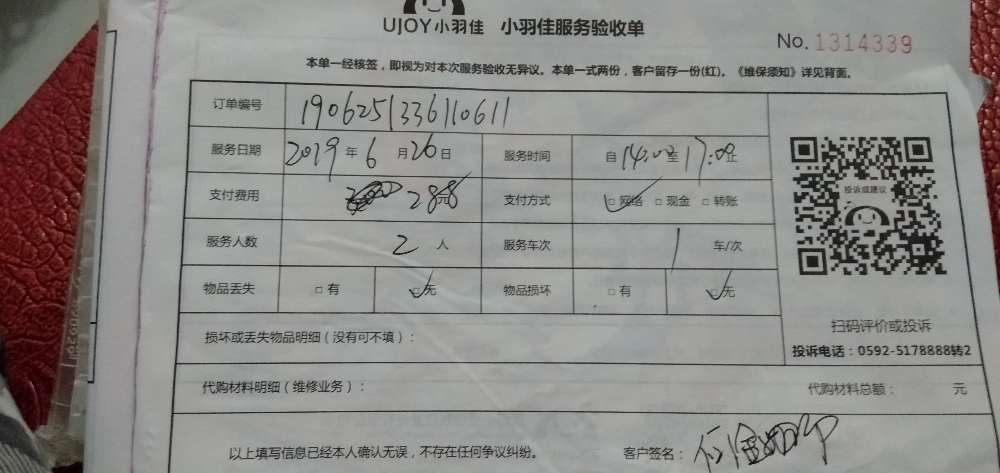 UJOY小羽佳 小羽佳服务验收单
No. 1314339
本单一经核签，即视为对本次服务验收无异议。本单一式两份，客户留存一份(红)。《维保须知》详见背面。
订单编号 190625133611061​1
服务日期 2019 年 6 月 26 日 服务时间 自 14:00 至 17:00 止
支付费用 288 支付方式 □网络 □现金 □转账
投诉或建议
服务人数 2 人 服务车次 1 车/次
物品丢失 □有 □无 物品损坏 □有 □无
扫码评价或投诉
投诉电话：0592-5178888转2
损坏或丢失物品明细（没有可不填）：
代购材料明细（维修业务）： 代购材料总额： 元
以上填写信息已经本人确认无误，不存在任何争议纠纷。 客户签名：